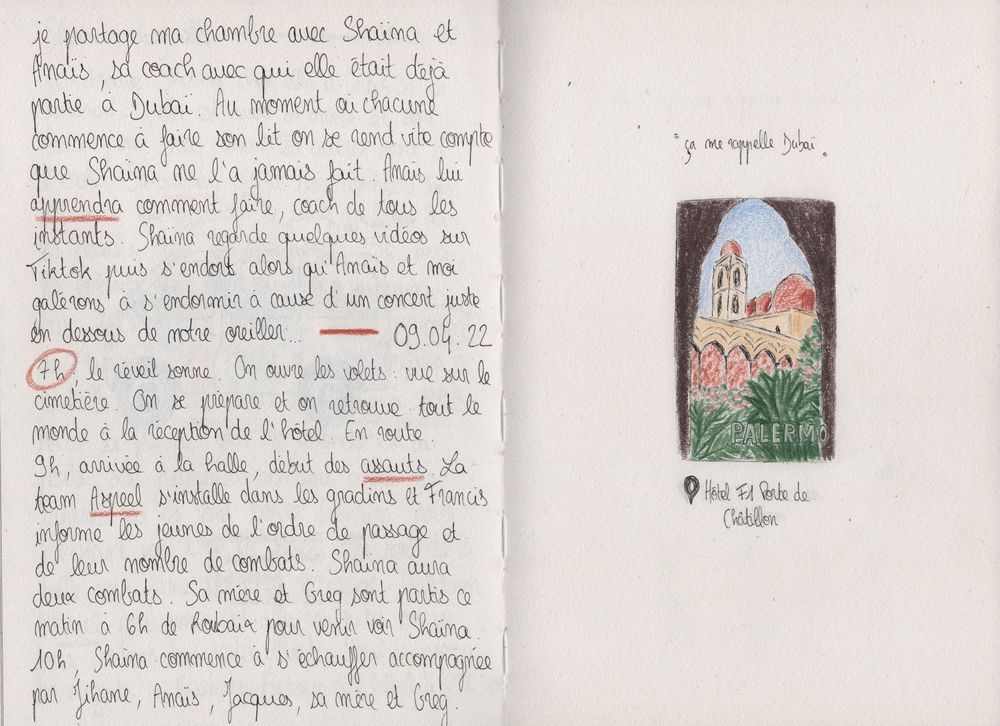 je partage ma chambre avec Shaïna et
Anaïs, sa coach avec qui elle était déjà
partie à Dubaï. Au moment où chacune
commence à faire son lit on se rend vite compte
que Shaïna ne l'a jamais fait. Anaïs lui
apprendra comment faire, coach de tous les
instants. Shaïna regarde quelques vidéos sur
Tiktok puis s'endort alors qu'Anaïs et moi
galérons à s'endormir à cause d'un concert juste
en dessous de notre oreiller... — 09.04.22
7h, le réveil sonne. On ouvre les volets : vue sur le
cimetière. On se prépare et on retrouve tout le
monde à la réception de l'hôtel. En route.
9h, arrivée à la halle, début des assauts. La
team Aspeel s'installe dans les gradins et Francis
informe les jeunes de l'ordre de passage et
de leur nombre de combats. Shaïna aura
deux combats. Sa mère et Greg sont partis ce
matin à 6h de Roubaix pour venir voir Shaïna.
10h, Shaïna commence à s'échauffer accompagnée
par Jihane, Anaïs, Jacques, sa mère et Greg.
"ça me rappelle Dubaï"
PALERMO
Hôtel F1 Porte de
Châtillon